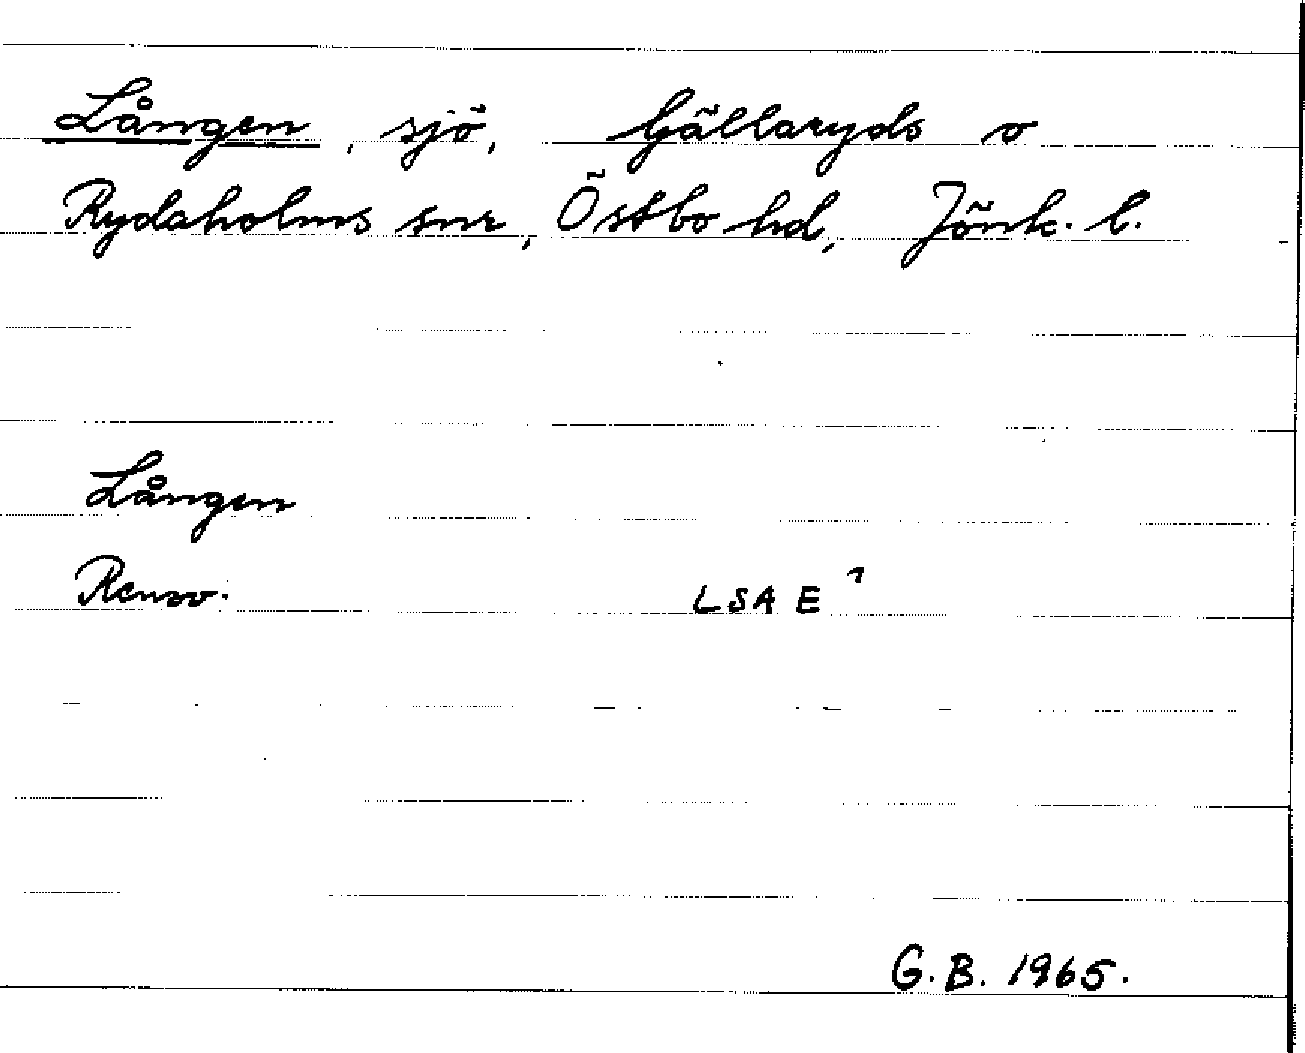 Lången, sjö, Gällaryds o
Rydaholms snr, Östbo hd, Jönk. l.
Lången
Renov. LSA E 7
G.B. 1965.